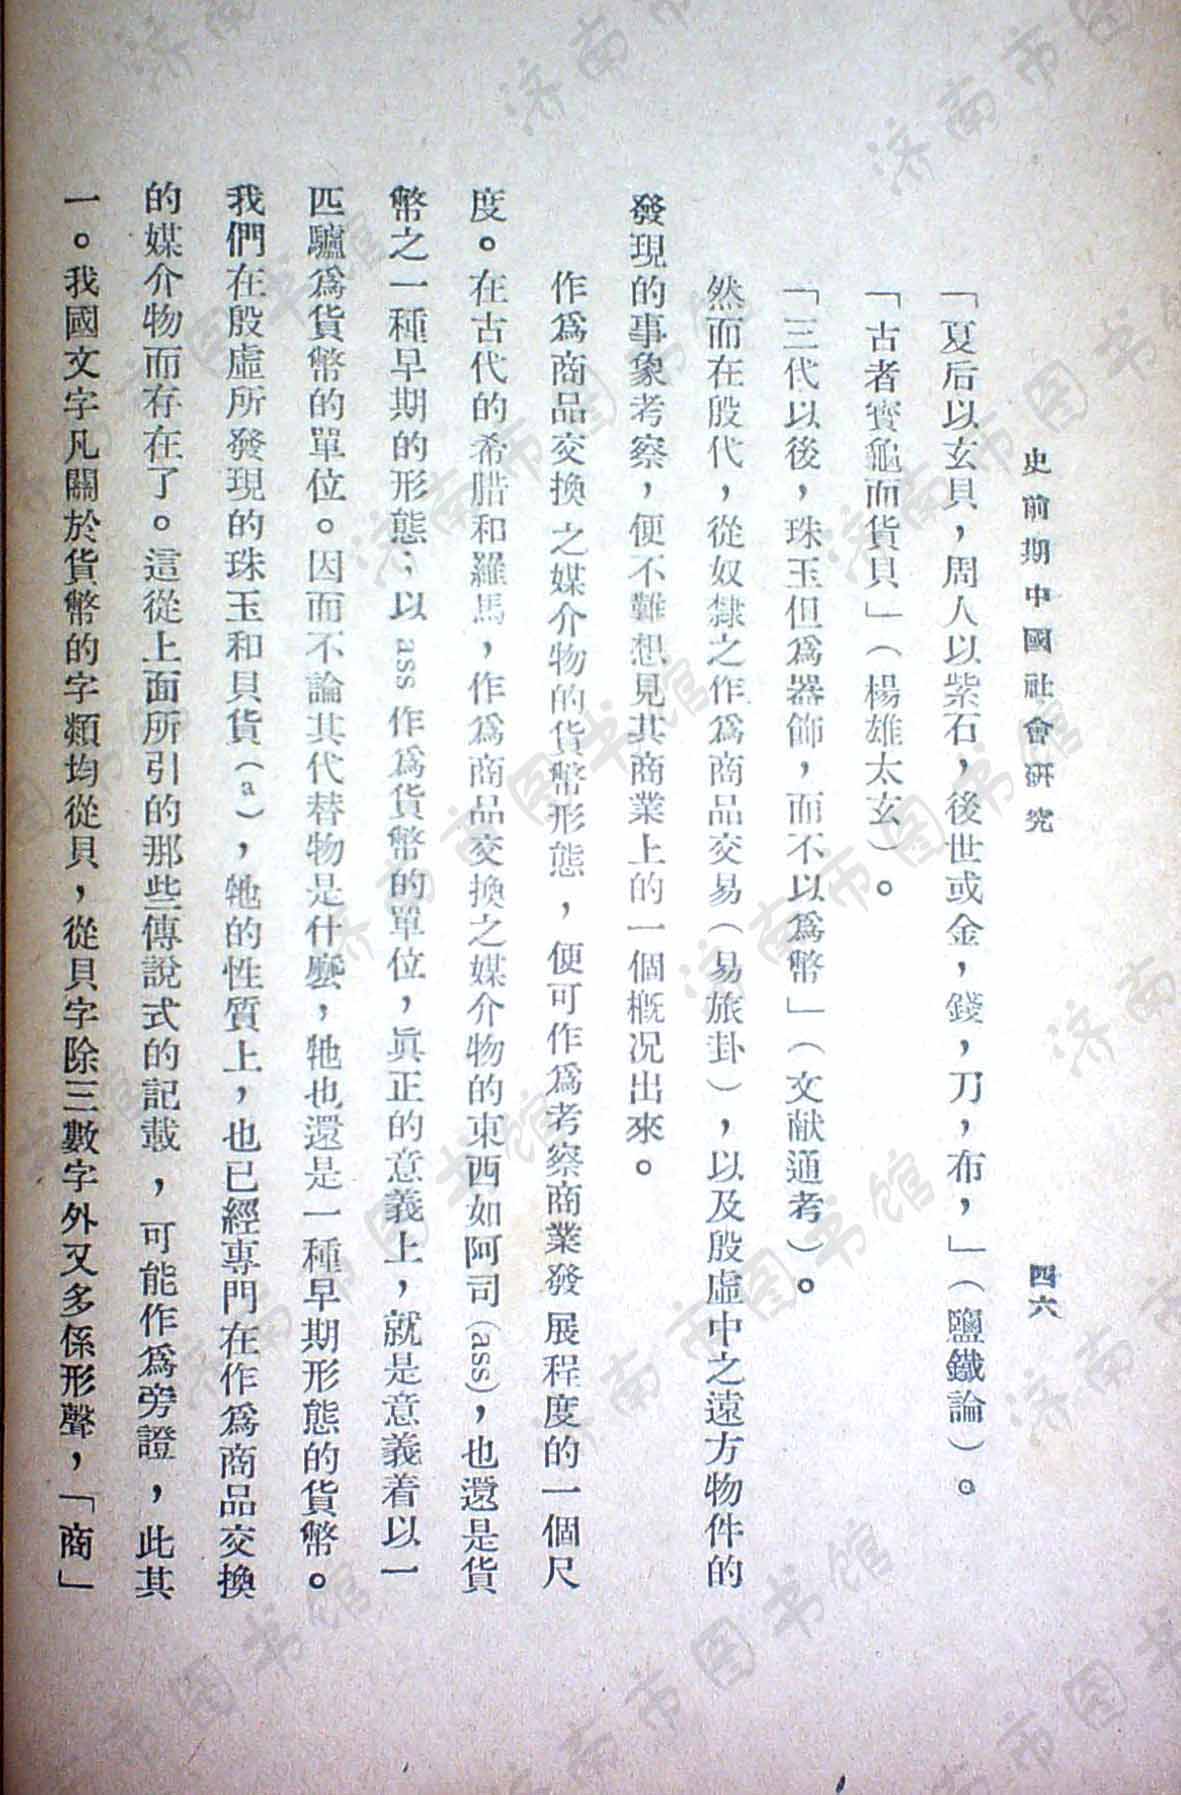 史前期中國社會研究
四六
「夏后以玄貝，周人以紫石，後世或金，錢，刀，布，」（鹽鐵論）。
「古者寶龜而貨貝」（楊雄太玄）。
「三代以後，珠玉但爲器飾，而不以爲幣」（文献通考）。
然而在殷代，從奴隸之作爲商品交易（易旅卦），以及殷虛中之遠方物件的
發現的事象考察，便不難想見其商業上的一個槪况出來。
作爲商品交換之媒介物的貨幣形態，便可作爲考察商業發展程度的一個尺
度。在古代的希腊和羅馬，作爲商品交換之媒介物的東西如阿司(ass)，也還是貨
幣之一種早期的形態；以 ass 作爲貨幣的單位，眞正的意義上，就是意義着以一
匹驢爲貨幣的單位。因而不論其代替物是什麽，牠也還是一種早期形態的貨幣。
我們在殷虛所發現的珠玉和貝貨(a)，牠的性質上，也已經專門在作爲商品交換
的媒介物而存在了。這從上面所引的那些傳說式的記載，可能作爲旁證，此其
一。我國文字凡關於貨幣的字類均從貝，從貝字除三數字外又多係形聲，「商」
济南市图书馆